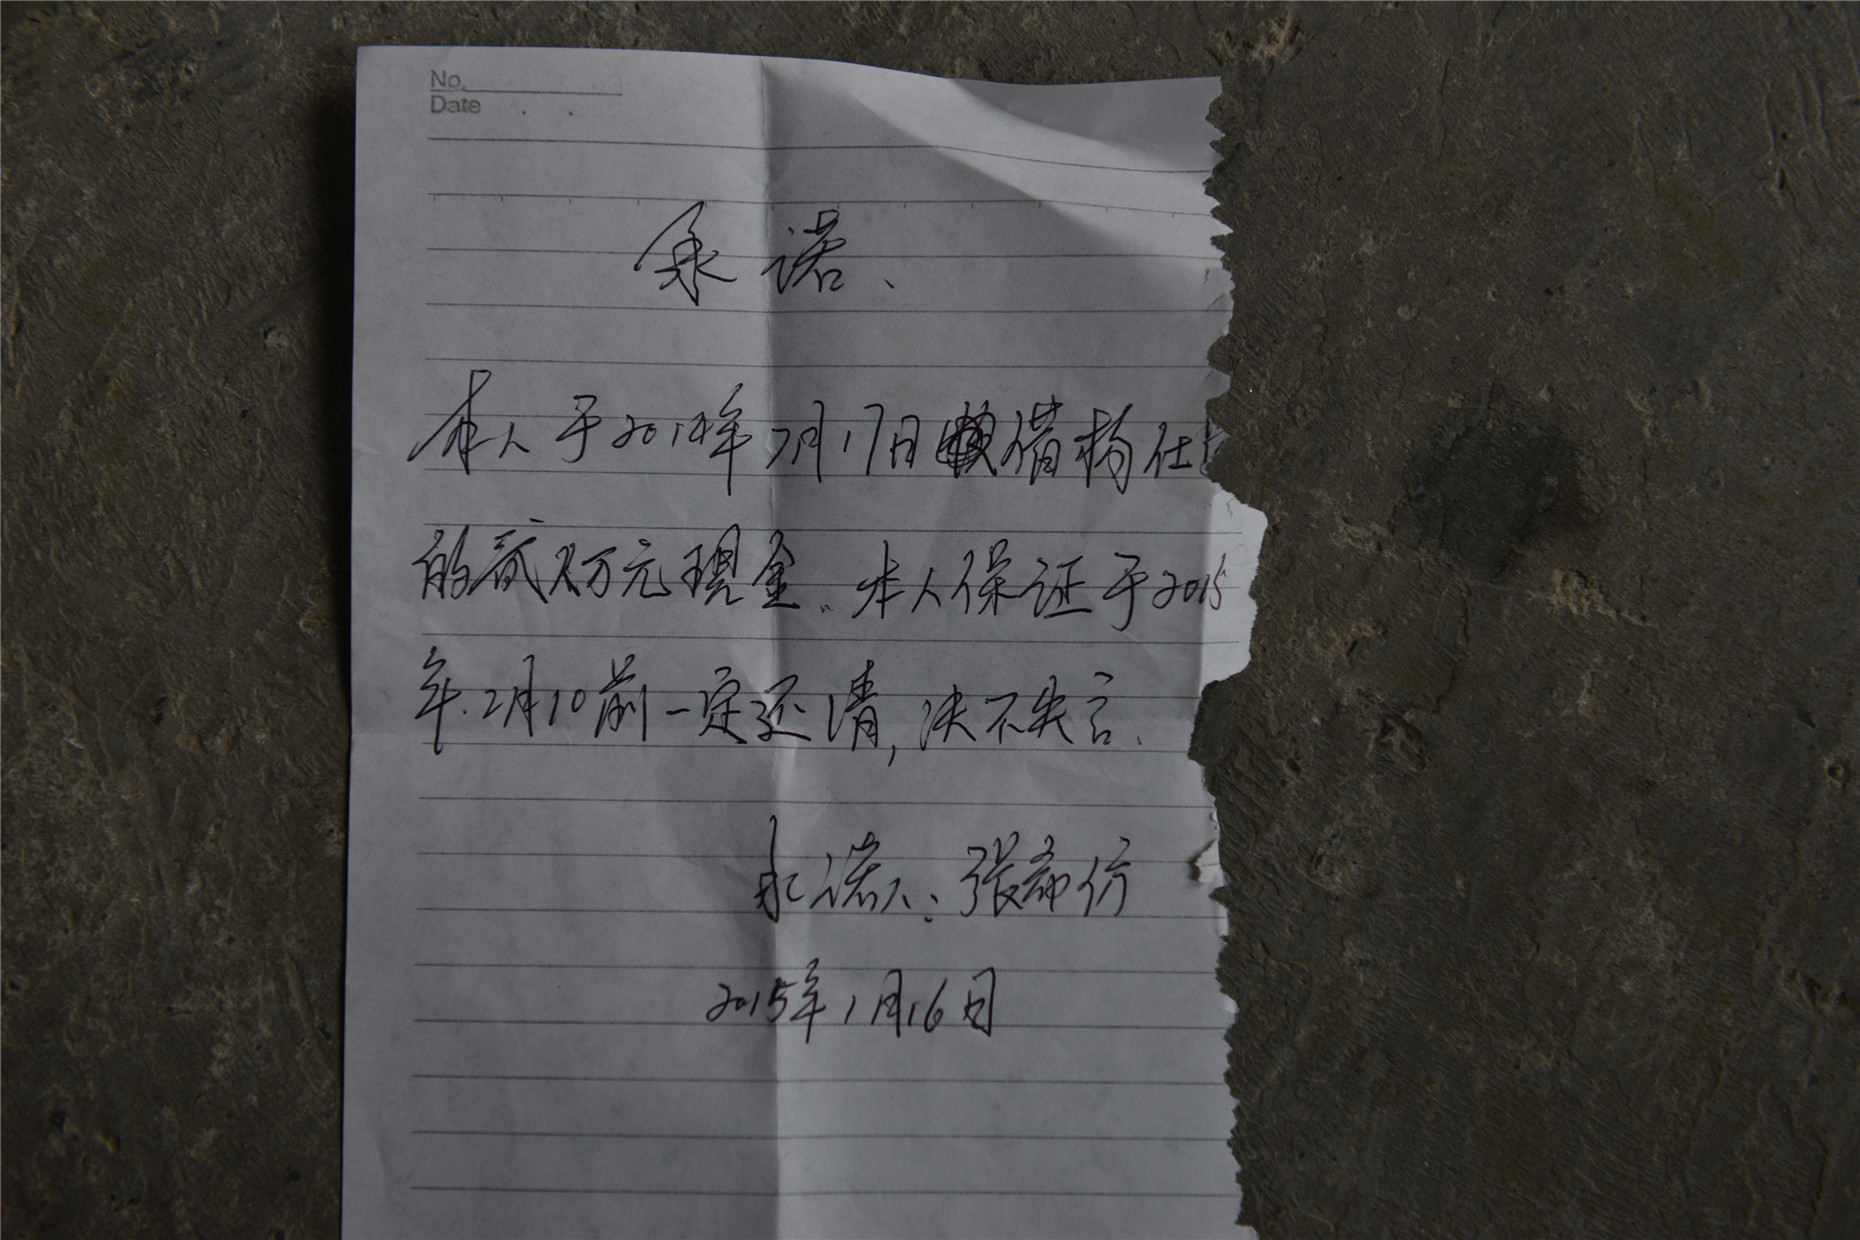 No.
Date
承诺、
本人于2014年7月17日借杨仕
的贰万元现金. 本人保证于2015
年.2月10前一定还清,决不失言.
承诺人: 张
2015年1月16日